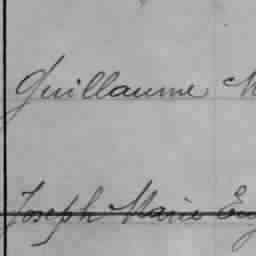 Guillaume M
Joseph Marie Eug